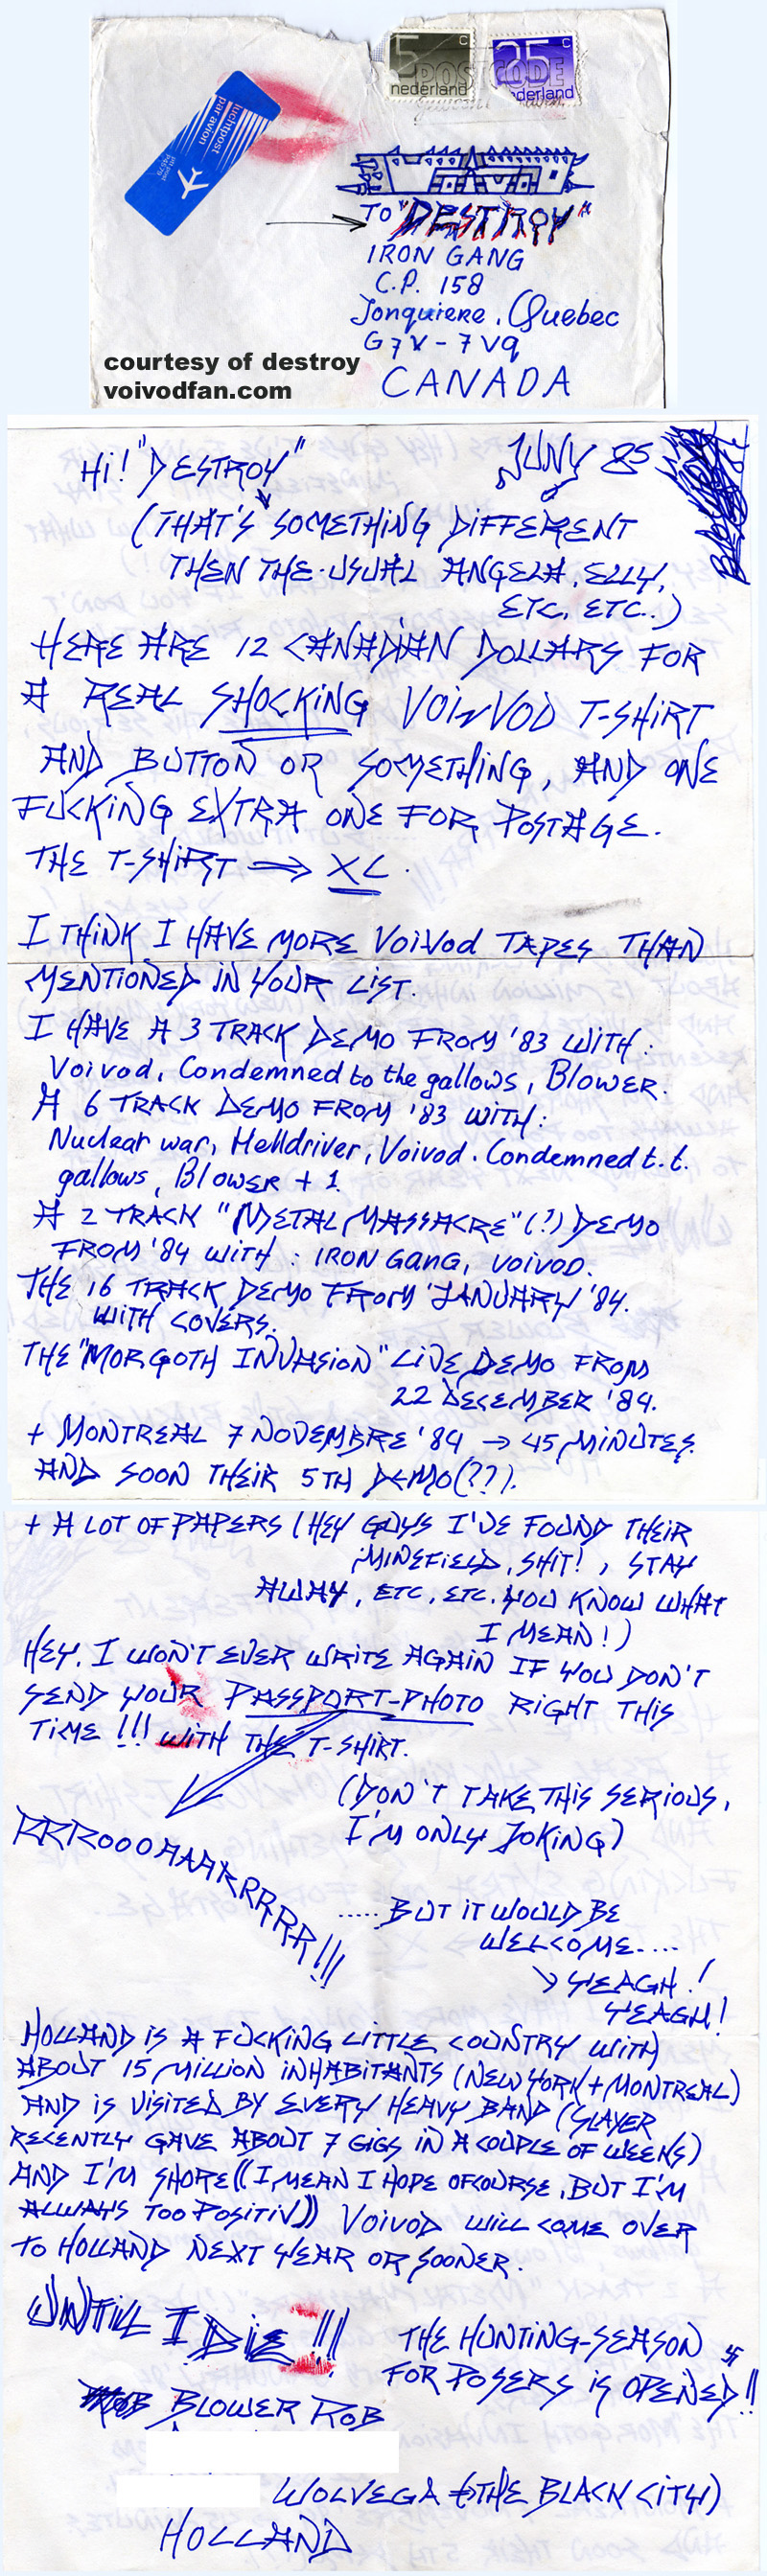 5 c
nederland
25 c
nederland
POSTCODE
luchtpost
par avion
TO "DESTROY"
IRON GANG
C.P. 158
Jonquiere, Quebec
G7X-7V9
CANADA
courtesy of destroy
voivodfan.com
Hi! "DESTROY" JUNY 85
(THAT'S SOMETHING DIFFERENT
THEN THE USUAL ANGELA, ELLY,
ETC, ETC..)
HERE ARE 12 CANADIAN DOLLARS FOR
A REAL SHOCKING VOIVOD T-SHIRT
AND BUTTON OR SOMETHING, AND ONE
FUCKING EXTRA ONE FOR POSTAGE.
THE T-SHIRT ⇒ XL.
I THINK I HAVE MORE VOIVOD TAPES THAN
MENTIONED IN YOUR LIST.
I HAVE A 3 TRACK DEMO FROM '83 WITH:
Voivod, Condemned to the gallows, BLOWER.
A 6 TRACK DEMO FROM '83 WITH:
Nuclear war, Helldriver, Voivod. Condemned t.t.
gallows, BLOWER + 1
A 2 TRACK "METAL MASSACRE" (!) DEMO
FROM '84 WITH: IRON GANG, VOIVOD.
THE 16 TRACK DEMO FROM JANUARY '84.
WITH COVERS.
THE "MORGOTH INVASION" LIVE DEMO FROM
22 DECEMBER '84.
+ MONTREAL 7 NOVEMBRE '84 → 45 MINUTES
AND SOON THEIR 5TH DEMO (??).
+ A LOT OF PAPERS (HEY GUYS I'VE FOUND THEIR
MINEFIELD, SHIT!, STAY
AWAY, ETC, ETC. YOU KNOW WHAT
I MEAN!)
HEY. I WON'T EVER WRITE AGAIN IF YOU DON'T
SEND YOUR PASSPORT-PHOTO RIGHT THIS
TIME!!! WITH THE T-SHIRT.
(DON'T TAKE THIS SERIOUS,
I'M ONLY JOKING)
RRROOOAAARRRRRR!!!
..... BUT IT WOULD BE
WELCOME....
→ YEAGH!
YEAGH!
HOLLAND IS A FUCKING LITTLE COUNTRY WITH
ABOUT 15 MILLION INHABITANTS (NEW YORK + MONTREAL)
AND IS VISITED BY EVERY HEAVY BAND (SLAYER
RECENTLY GAVE ABOUT 7 GIGS IN A COUPLE OF WEEKS)
AND I'M SHORE ((I MEAN I HOPE OFCOURSE, BUT I'M
ALWAYS TOO POSITIV)) VOIVOD WILL COME OVER
TO HOLLAND NEXT YEAR OR SOONER.
UNTILL I DIE!!!
THE HUNTING-SEASON
FOR POSERS IS OPENED!!
BLOWER ROB
WOLVEGA (THE BLACK CITY)
HOLLAND